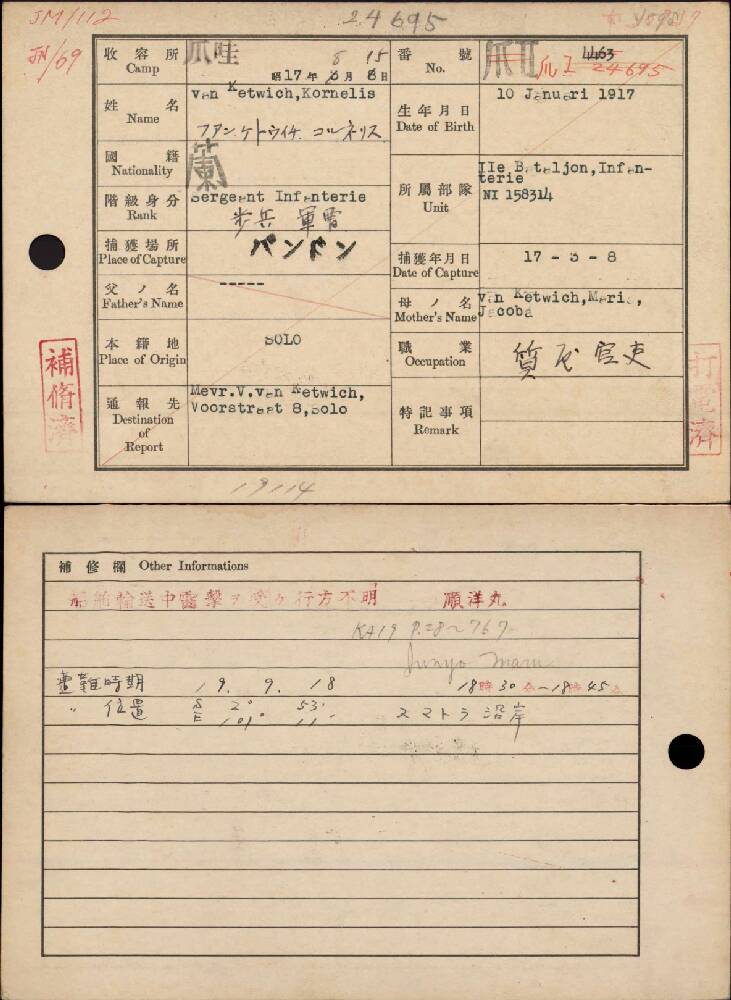 JM/112
24695
JN/69
收容所 Camp
爪哇
昭17年8月15日
番號 No.
爪Ⅱ
4463
24695
姓名 Name
van Ketwich,Kornelis
ファン.ケトウイチ.コルネリス
生年月日 Date of Birth
10 Januari 1917
國籍 Nationality
蘭
所屬部隊 Unit
IIe Bataljon,Infan-
terie
NI 158314
階級身分 Rank
Sergeant Infanterie
步兵 軍曹
捕獲場所 Place of Capture
バンドン
捕獲年月日 Date of Capture
17 - 3 - 8
父ノ名 Father's Name
-----
母ノ名 Mother's Name
van Ketwich,Maria,
Jacoba
本籍地 Place of Origin
SOLO
職業 Occupation
質屋官吏
通報先 Destination of Report
Mevr.V.van Ketwich,
Voorstraat 8,Solo
特記事項 Remark
補脩濟
打電濟
19114
補修欄 Other Informations
船舶輸送中雷擊ヲ受ケ行方不明 順洋丸
Junyo Maru
遭難時期 19. 9. 18 18時30分~18時45分
〃 位置 S 2° 53' スマトラ沿岸
E 101° 11'